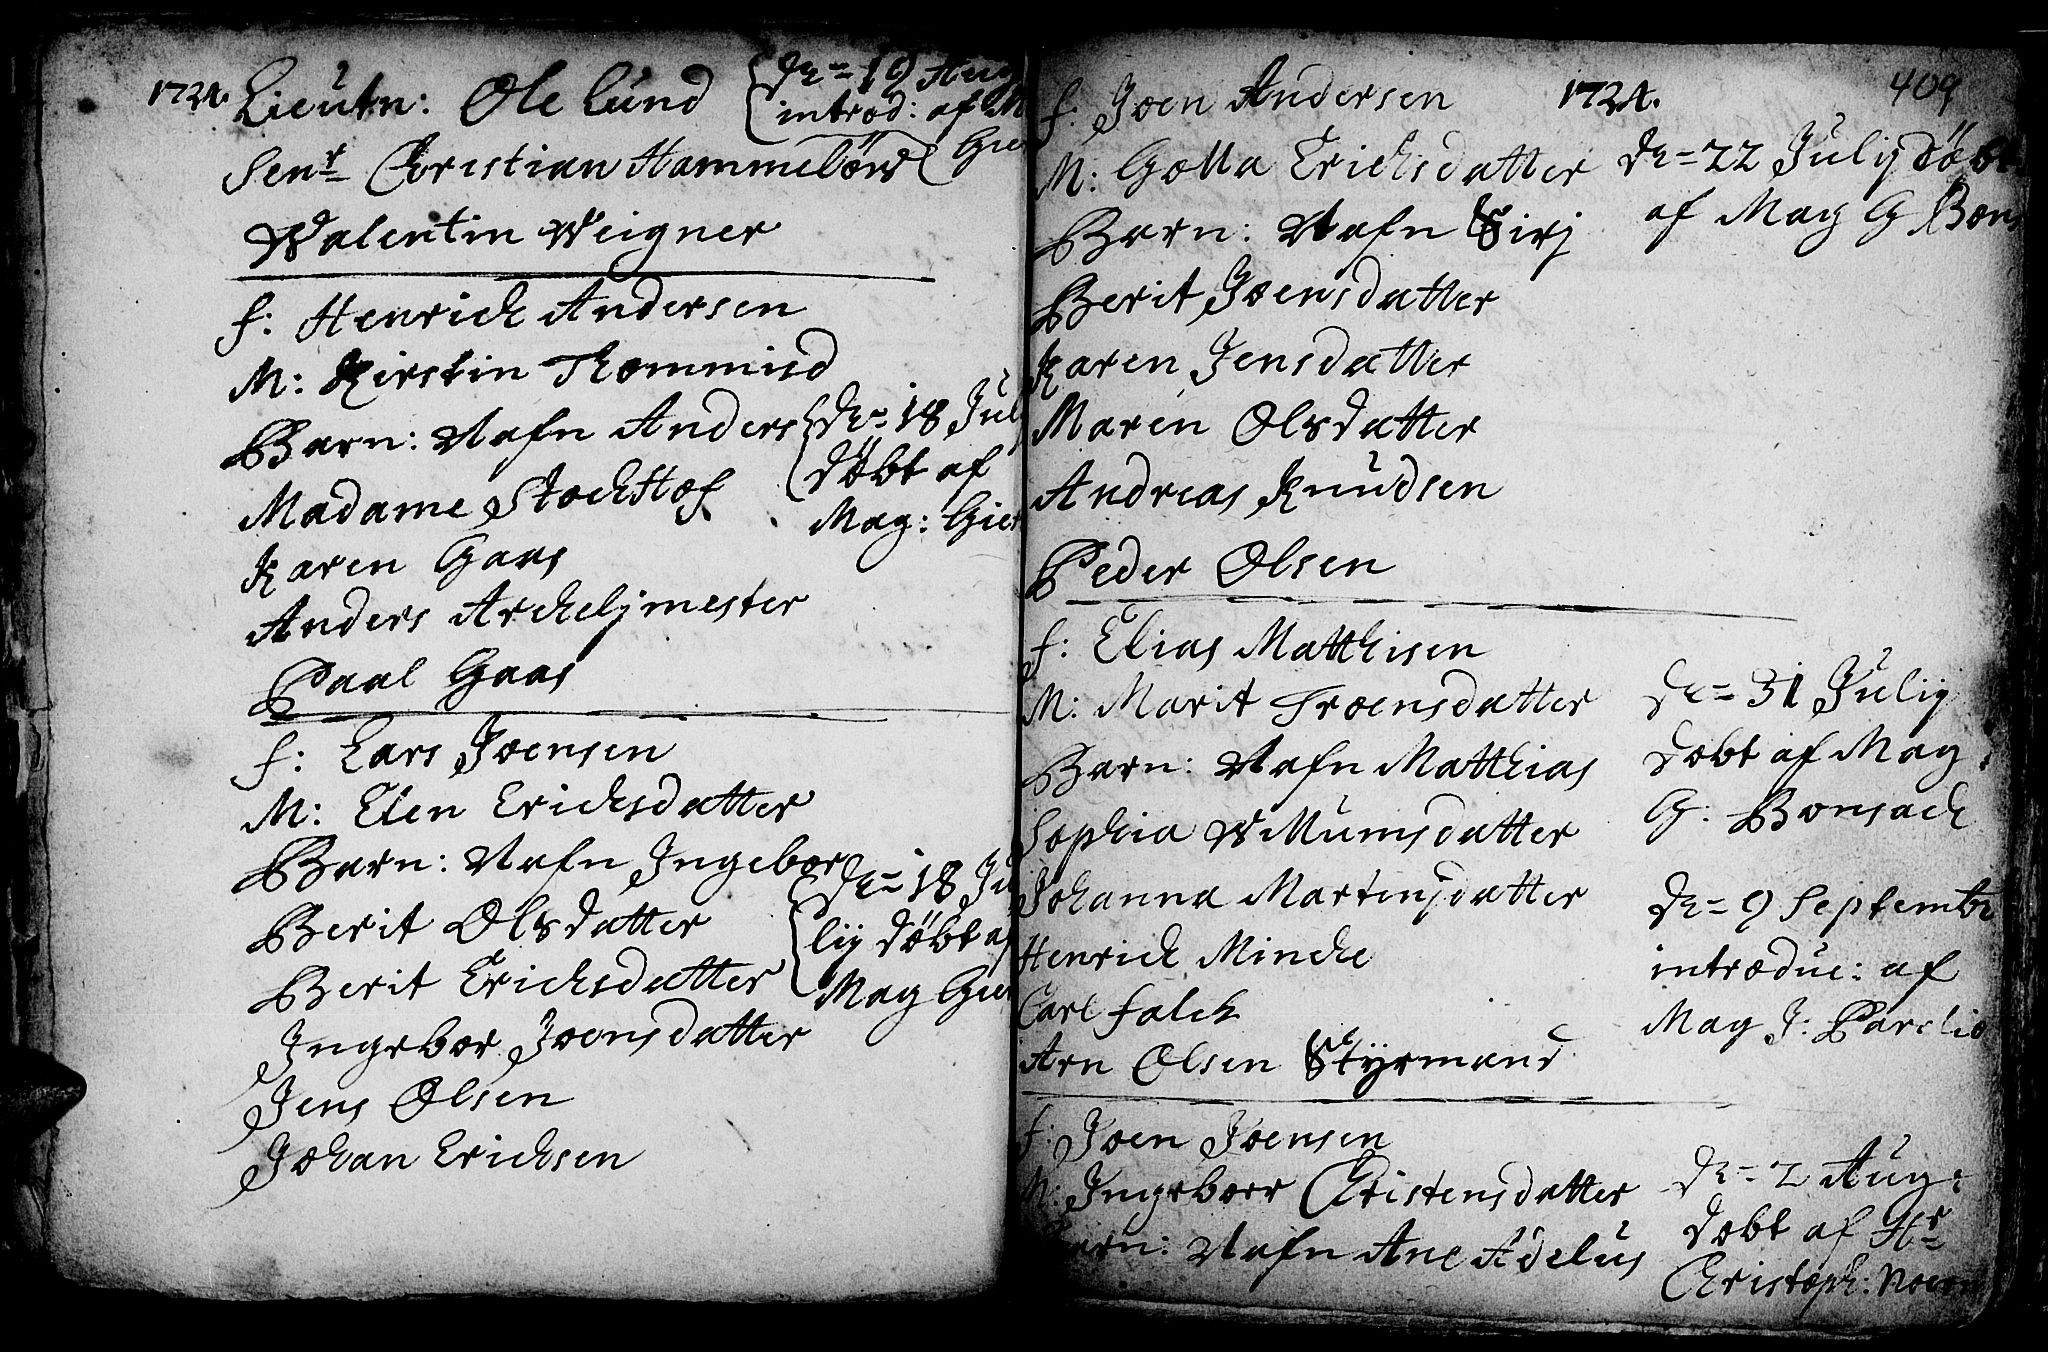 1724.
Lieutn: Ole Lund
Dn= 19 Aug
introd: af M
Senr Christian Hammelöw
Gier
Valentin Weigner
f: Henrich Andersen
M: Kirstin Thommisd
Barn: Nafn Anders
Dn= 18 Jul
döbt af
Mag: Gier
Madame Stockhof
Karen Gars
Anders Arckelymester
Paal Gaas
f: Lars Joensen
M: Elen Erichsdatter
Barn: Nafn Ingebor
Dn= 18 Ju
lij döbt af
Mag Gier
Berit Olsdatter
Berit Erichsdatter
Ingebor Joensdatter
Jens Olsen
Johan Erichsen
1724.
409
f: Joen Andersen
M: Golla Erichsdatter
Dn= 22 Julij döbt
af Mag G Bons
Barn: Nafn Sirj
Berit Joensdatter
Karen Jensdatter
Maren Olsdatter
Andreas Knudsen
Peder Olsen
f: Elias Matthisen
M: Marit Troensdatter
Dn= 31 Julij
dobt af Mag:
G: Bonsach
Barn: Nafn Matthias
Sophia Mumsdatter
Johanna Martensdatter
Dn= 9 Septembr
introduc: af
Mag J: Parelio
Henrich Minche
Carl Falch
Arn Olsen Styrmand
f: Joen Joensen
M: Ingeborr Christensdatter
Dn= 2 Aug:
dobt af Hr
Christoph:
Barn: Nafn Ane Adelus